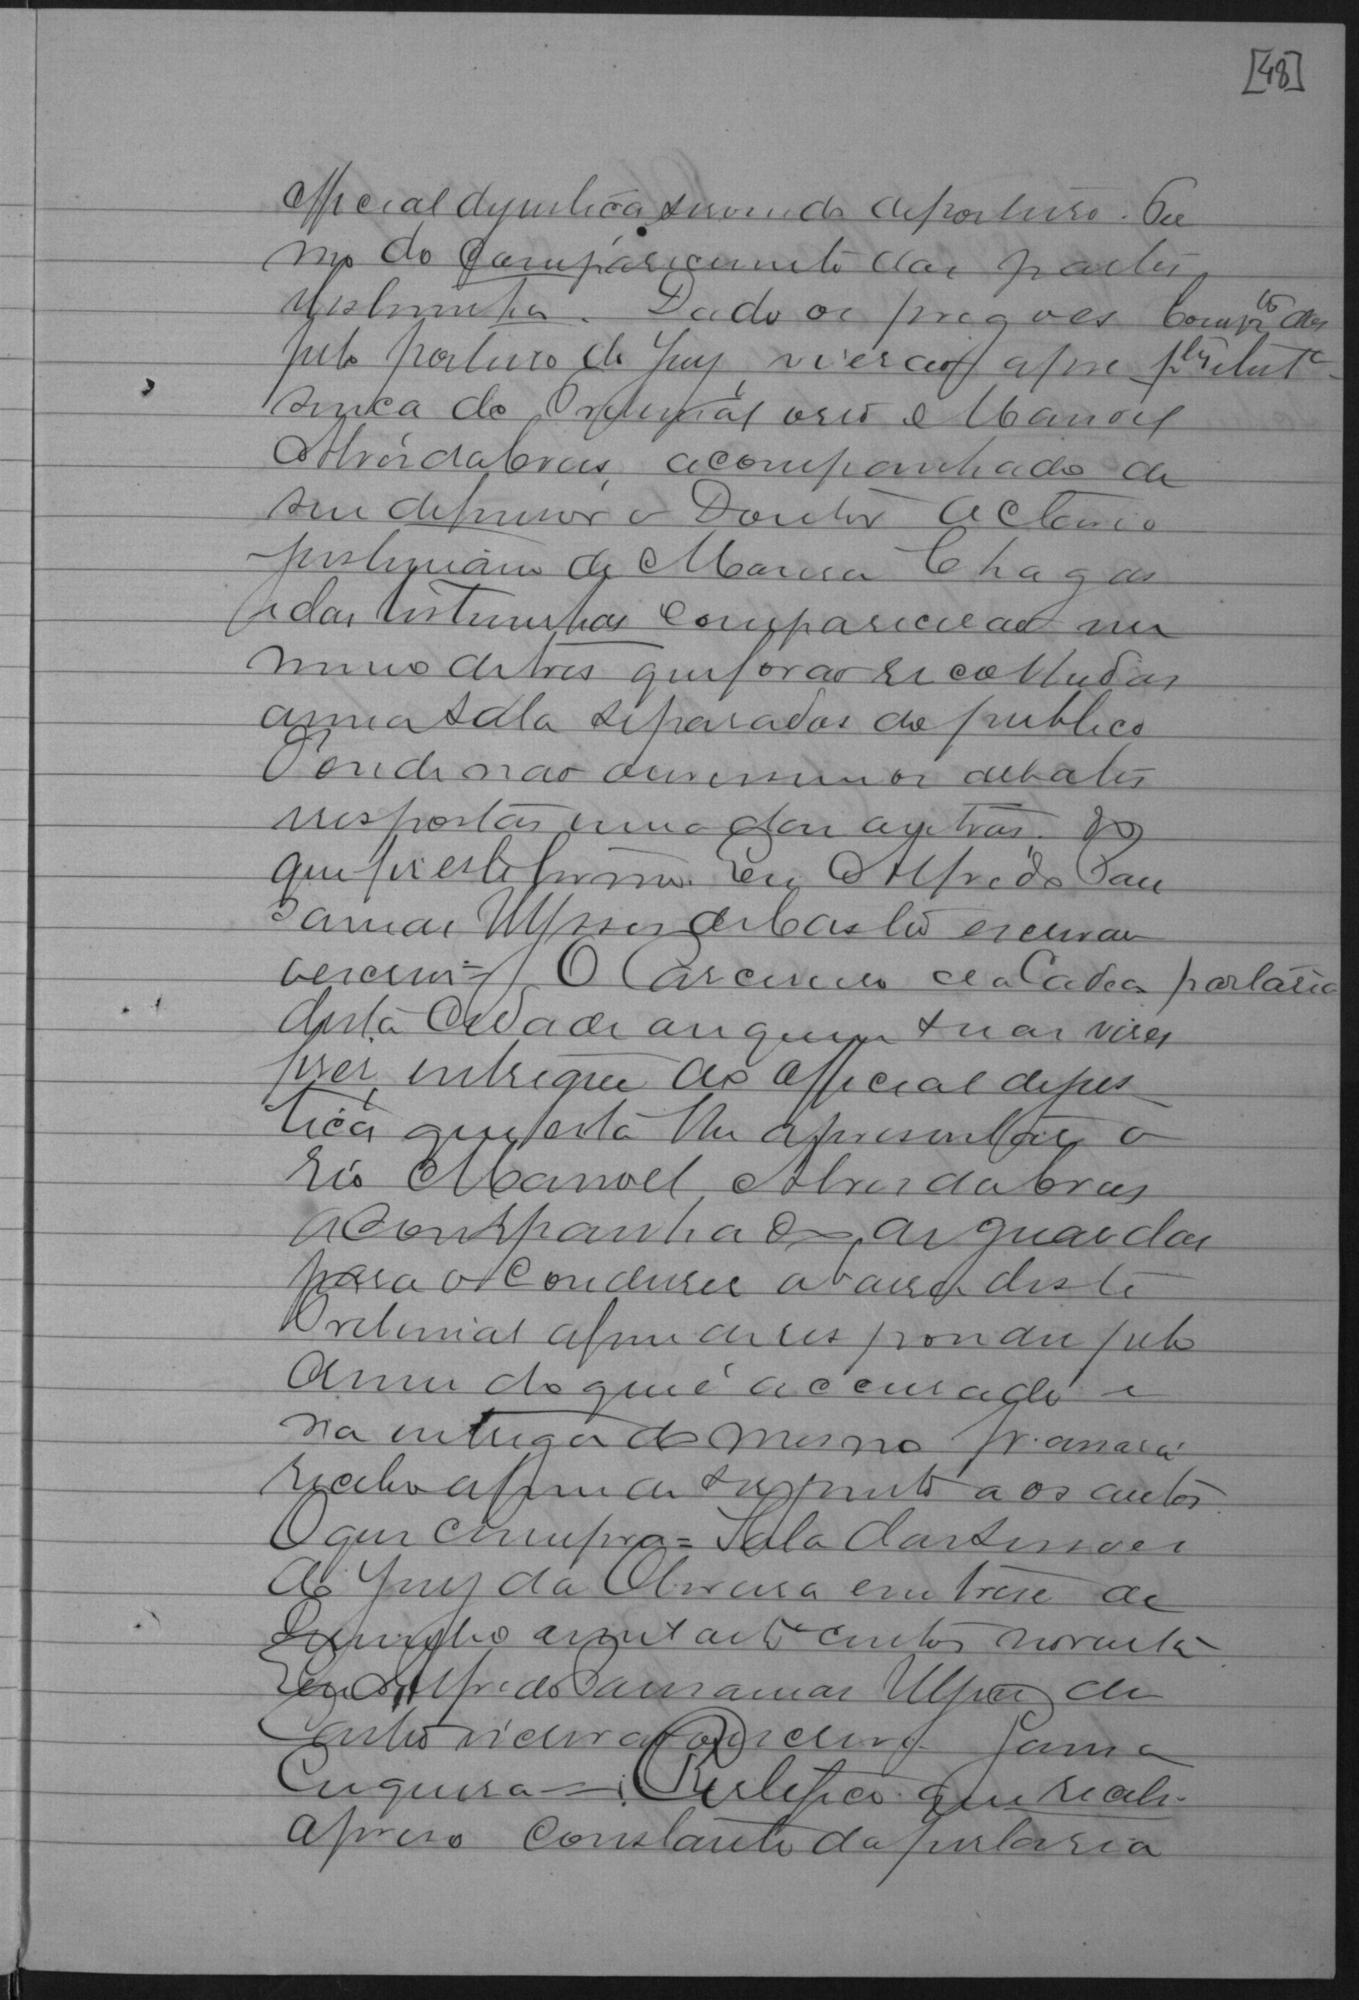 [48]
official de justica servindo de porteiro. Ter
mo do Comparecimento das partes
testemunhas. Dado os pregoes Comp.to das
pelo porteiro do Jury, vierão a pre
sença do Tribunal o reo Manoel
Alves da Cruz, acompanhado de
seu defensor o Doutor Acta
de Chagas
e das testemunhas Comparecerão nu
mero de tres que forão recolhidas
a uma sala separadas do publico
d'onde não ouvissem os debates
respostas uma das outras. Do
que fiz este termo. Eu Alfredo Pau
Ulysses de Castro escrivão
escrevi = O Carcereiro da Cadea
desta Cidade ou quem suas vezes
fizer, entregue ao official de jus
tiça que esta lhe apresentar, o
réo Manoel Alves da Cruz
acompanhado as guardas
para o conduzir a barra deste
Tribunal afim de responder pelo
crime do que é accusado e
na entrega do mesmo passará
recibo afim de ser junto aos autos.
O que cumpra = Sala das Sessões
do Jury da em treze de
Junho de mil oito centos noventa
Eu Alfredo Ulysses de
Castro escrivão escrevi Gama
Cerqueira = Certifico que recebi
o preso constante da portaria